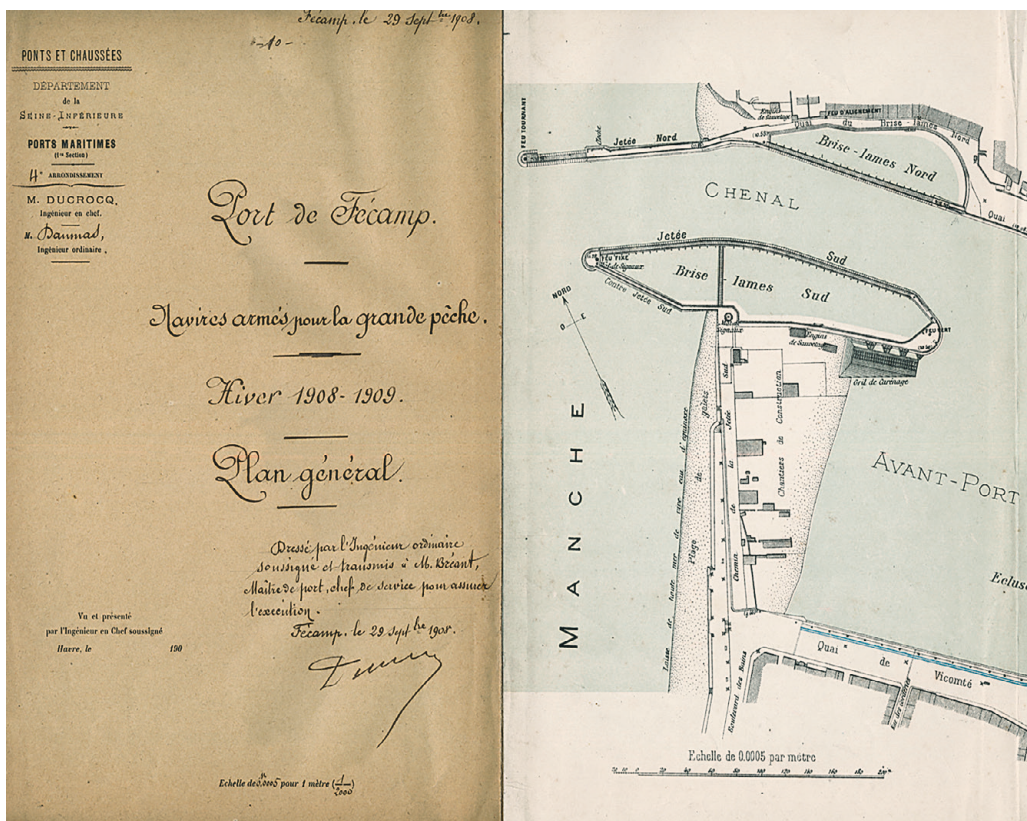 Fécamp, le 29 Sept bre 1908.
PONTS ET CHAUSSÉES
DÉPARTEMENT
de la
SEINE-INFÉRIEURE
PORTS MARITIMES
4e ARRONDISSEMENT
M. DUCROCQ,
Ingénieur en chef.
M. Daumas,
Ingénieur ordinaire,
Port de Fécamp.
Navires armés pour la grande pêche.
Hiver 1908-1909.
Plan général.
Dressé par l'Ingénieur ordinaire
soussigné et transmis à M. Bréant,
Maître de port, chef de service pour assurer
l'exécution.
Fécamp, le 29 Sept bre 1908.
Vu et présenté
par l'Ingénieur en Chef soussigné
Havre, le 190
Echelle de 0m,0005 pour 1 mètre (1/2000)
FEU TOURNANT
Jetée Nord
Engins
de Sauvetage
FEU D'ALIGNEMENT
Quai du Brise-lames Nord
Brise-lames Nord
CHENAL
Quai
Jetée Sud
FEU FIXE
Mât de Signaux
Brise-lames Sud
Contre Jetée Sud
NORD
O E
Signaux
Engins
de Sauvetage
FEU VERT
Gril de Carénage
MANCHE
Laisse de haute mer de vive eau d'équinoxe
Plage de galets
Chemin de la Jetée Sud
Chantiers de Construction
AVANT-PORT
Ecluse
Quai de Vicomté
Boulevard des Bains
Echelle de 0.0005 par mètre
20 10 0 20 40 60 80 100 120 140 160 180 200